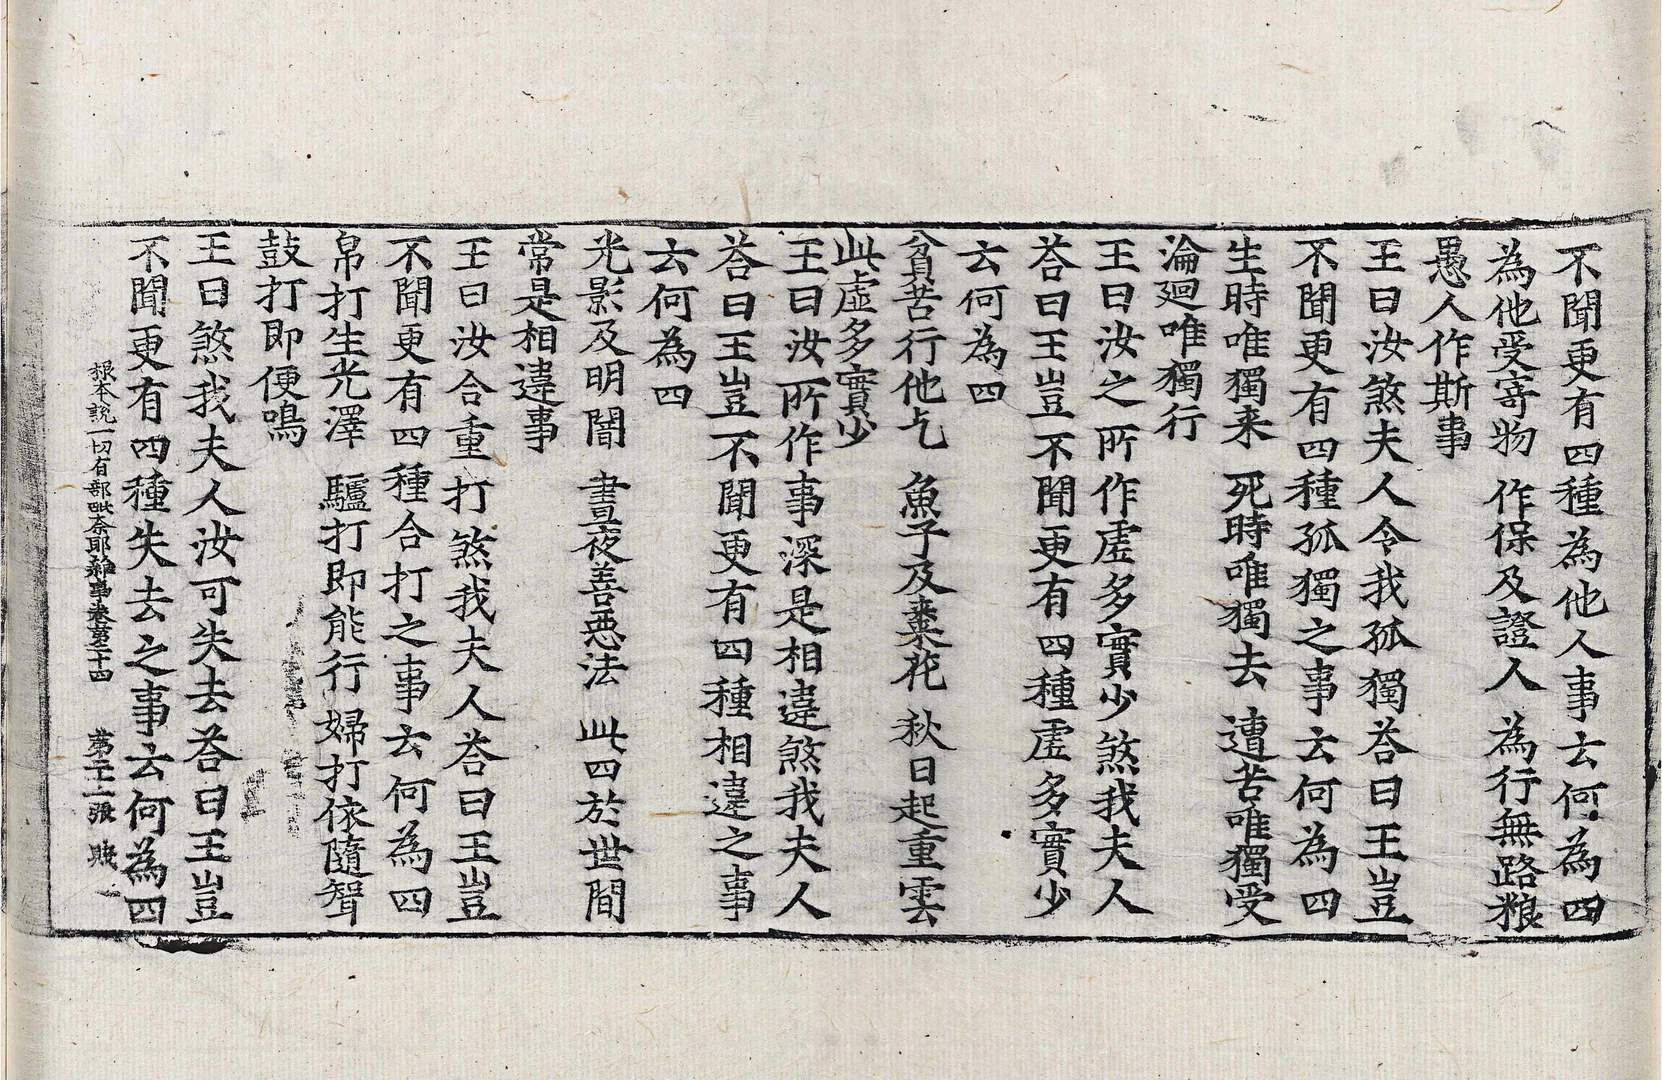 不聞更有四種為他人事去何為四
為他受寄物 作保及證人 為行無路粮
愚人作斯事
王曰汝煞夫人令我孤獨荅曰王豈
不聞更有四種孤獨之事去何為四
生時唯獨来 死時唯獨去 遭苦唯獨受
淪廻唯獨行
王曰汝之所作虛多實少煞我夫人
荅曰王豈不聞更有四種虛多實少
去何為四
貧苦行他乞 魚子及棗花 秋日起重雲
此虛多實少
王曰汝所作事深是相違煞我夫人
荅曰王豈不聞更有四種相違之事
去何為四
光影及明闇 晝夜善惡法 此四於世間
常是相違事
王曰汝合重打煞我夫人荅曰王豈
不聞更有四種合打之事去何為四
帛打生光澤 驢打即能行 婦打依隨聟
鼓打即便鳴
王曰煞我夫人汝可失去荅曰王豈
不聞更有四種失去之事去何為四
根本說一切有部毗奈耶雜事卷第二十四 第二十二張